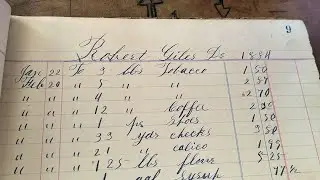 9
Robert Giles Dr 1884
Jan 22 To 3 lbs Tobacco 1 50
Feb 20 " 5 " "
" " " 4 " " 2 70
" " " 12 " Coffee 2
" " " 1 pr Shoes 1 50
" " " 33 yds checks 3 50
" " " 21 " calico
" " " 125 lbs flour 5 25
1 gal syrup